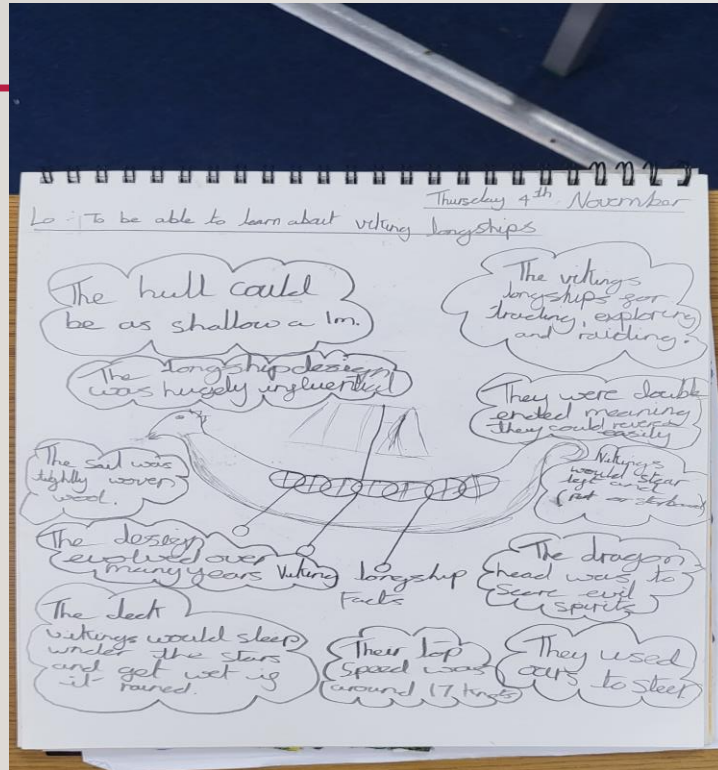 Thursday 4th November
Lo : To be able to learn about viking longships
The hull could
be as shallow a 1m.
The vikings
longships for
trading, exploring
and raiding.
The longship design
was hugely influential
They were double
ended meaning
they could reverse
easily
The sail was
tightly woven
wool.
Vikings
would stear
left and
(port or starboard)
The design
evolved over
many years
Viking longship
Facts
The dragon
head was to
scare evil
spirits
The deck
vikings would sleep
under the stars
and get wet if
it rained.
Their top
speed was
around 17 knots
They used
oars to steer